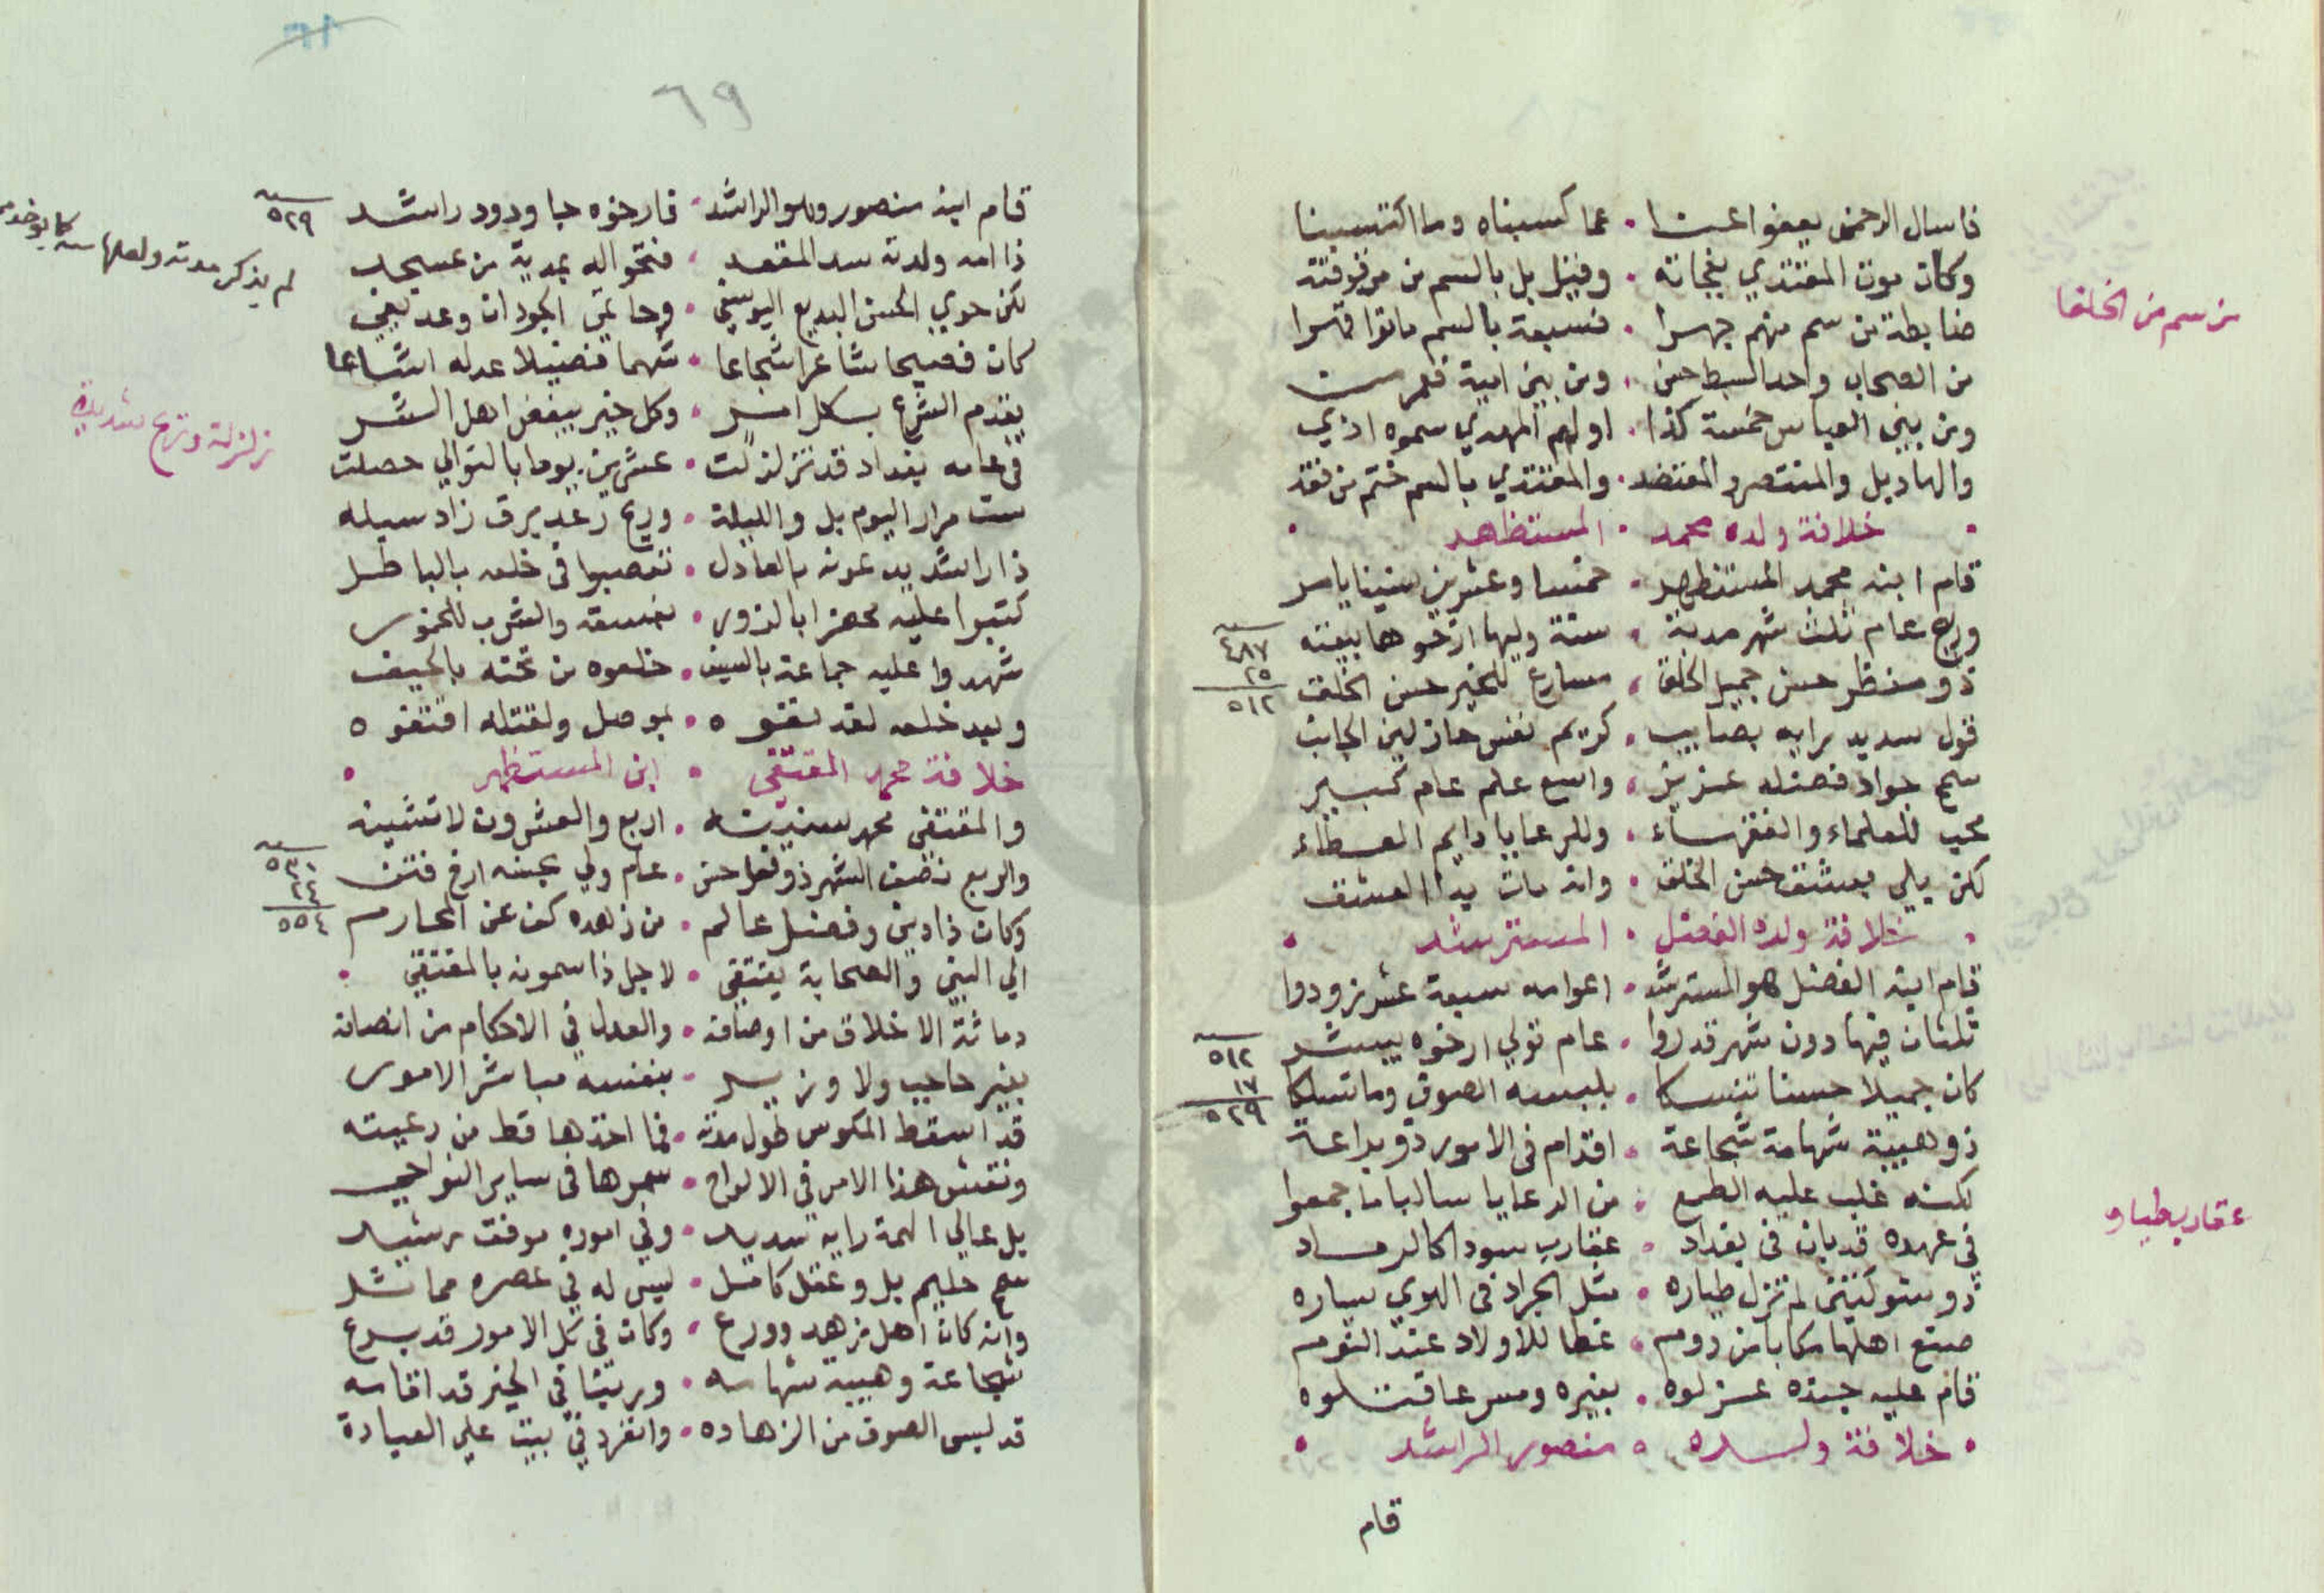 فاسال الرحمن يعفوا عنا • عما كسبناه وما اكتسبنا
وكان موت المقتدي بفجاته • وقيل بل بالسم من
ضابطة من سم منهم جهرا • فسبعة بالسم ماتوا قهرا
من سم من الخلفا
من الصحاب واحد السبط حسن • ومن بني امية
ومن بني العباس خمسة كذا • اولهم المهدي سموه اذي
والهاد بل والمنتصر والمعتضد • والمقتدي بالسم ختم من فقد
• خلافة ولده محمد • المستظهر •
قام ابنه محمد المستظهر • خمسا وعشرين سنينا يامر
وربع عام ثلث شهر مدته • سنة وليها ارخوها بيعته
سنه ٤٨٧
٢٥
٥١٢
ذو منظر حسن جميل الخلق • مسارع للخير حسن الخلق
قول سديد رايه بصايب • كريم نفس حاز لين الجانب
سمح جواد فضله عزيز • واسع علم عام كبير
محب للعلماء والفقراء • وللرعايا دايم العطاء
لكن بلي بعشق حسن الخلق • وانه مات بدا العشق
• خلافة ولده الفضل • المسترشد •
قام ابنه الفضل هو المسترشد • اعوامه سبعة عشر زودوا
ثلثان فيها دون شهر قدروا • عام تولي ارخوه يبشر
سنه ٥١٢
١٧
٥٢٩
كان جميلا حسنا تنسكا • بلبسه الصوف وما تسلكا
ذو هيبة شهامة شجاعة • اقدام في الامور ذو براعة
لكنه غلب عليه الطمع • من الرعايا سالبا ما جمعوا
في عهده قد بان في بغداد • عقارب سود كالرماد
عقارب طياره
ذو شوكتين لم تزل طياره • مثل الجراد في الهوي سياره
صنع اهلها مكابا من روم • غطا للاولاد عند النوم
قام عليه جنده عزلوه • بغيره ومسرعا قتلوه
• خلافة ولده • منصور الراشد •
قام
٦٩
قام ابنه منصور وهو الراشد • فارخوه جا ودود راشد
سنه ٥٢٩
ذا امه ولدته سد المقعد • فتحوا له بمدية من عسجد
لم يذكر مدته ولعلها سنه كما يوخذ
لكن حوي الحسن البديع اليوسفي • وحاتمي الجود ان وعد يفي
كان فصيحا شاعرا شجاعا • شهما فضيلا عدله اشاعا
يقدم الشرع بكل امر • وكل خير يبغض اهل الشر
زلزلة وريح شديدة
في عامه بغداد قد تزلزلت • عشرين يوما بالتوالي حصلت
ست مرار اليوم بل والليلة • وريح رعد برق زاد سيله
ذا راشد يدعونه بالعادل • تعصبوا في خلعه بالباطل
كتبوا عليه محضرا بالزور • بفسقه والشرب للخمور
شهدوا عليه جماعة بالسيف • خلعوه من تخته بالحيف
وبعد خلعه لقد نفوه • بموصل ولقتله اقتفوه
خلافة محمد المقتفي • ابن المستظهر •
والمقتفي محمد سنينه • اربع والعشرون لا تثنيه
والربع نصف الشهر ذو فعل حسن • عام ولي بحبسه ارخ فتن
سنه ٥٣٠
٢٤
٥٥٤
وكان ذا دين وفضل عالم • من زهده كف عن المحارم
الي النبي والصحابة يقتفي • لاجل ذا سموه بالمقتفي •
دماثة الاخلاق من اوصافه • والعدل في الاحكام من انصافه
بغير حاجب ولا وزير • بنفسه مباشر الامور
قد اسقط المكوس طول مدته • فما اخذها قط من رعيته
ونقش هذا الامر في الالواح • سمرها في ساير النواحي
بل عالي الهمة رايه سديد • وفي اموره موفق رشيد
سمح حليم بل وعقل كامل • ليس له في عصره مماثل
وانه كان اهل زهد وورع • وكان في كل الامور قد برع
شجاعة وهيبة شهامه • وربنا في الخير قد اقامه
قد لبس الصوف من الزهاده • وانفرد في بيت علي العبادة